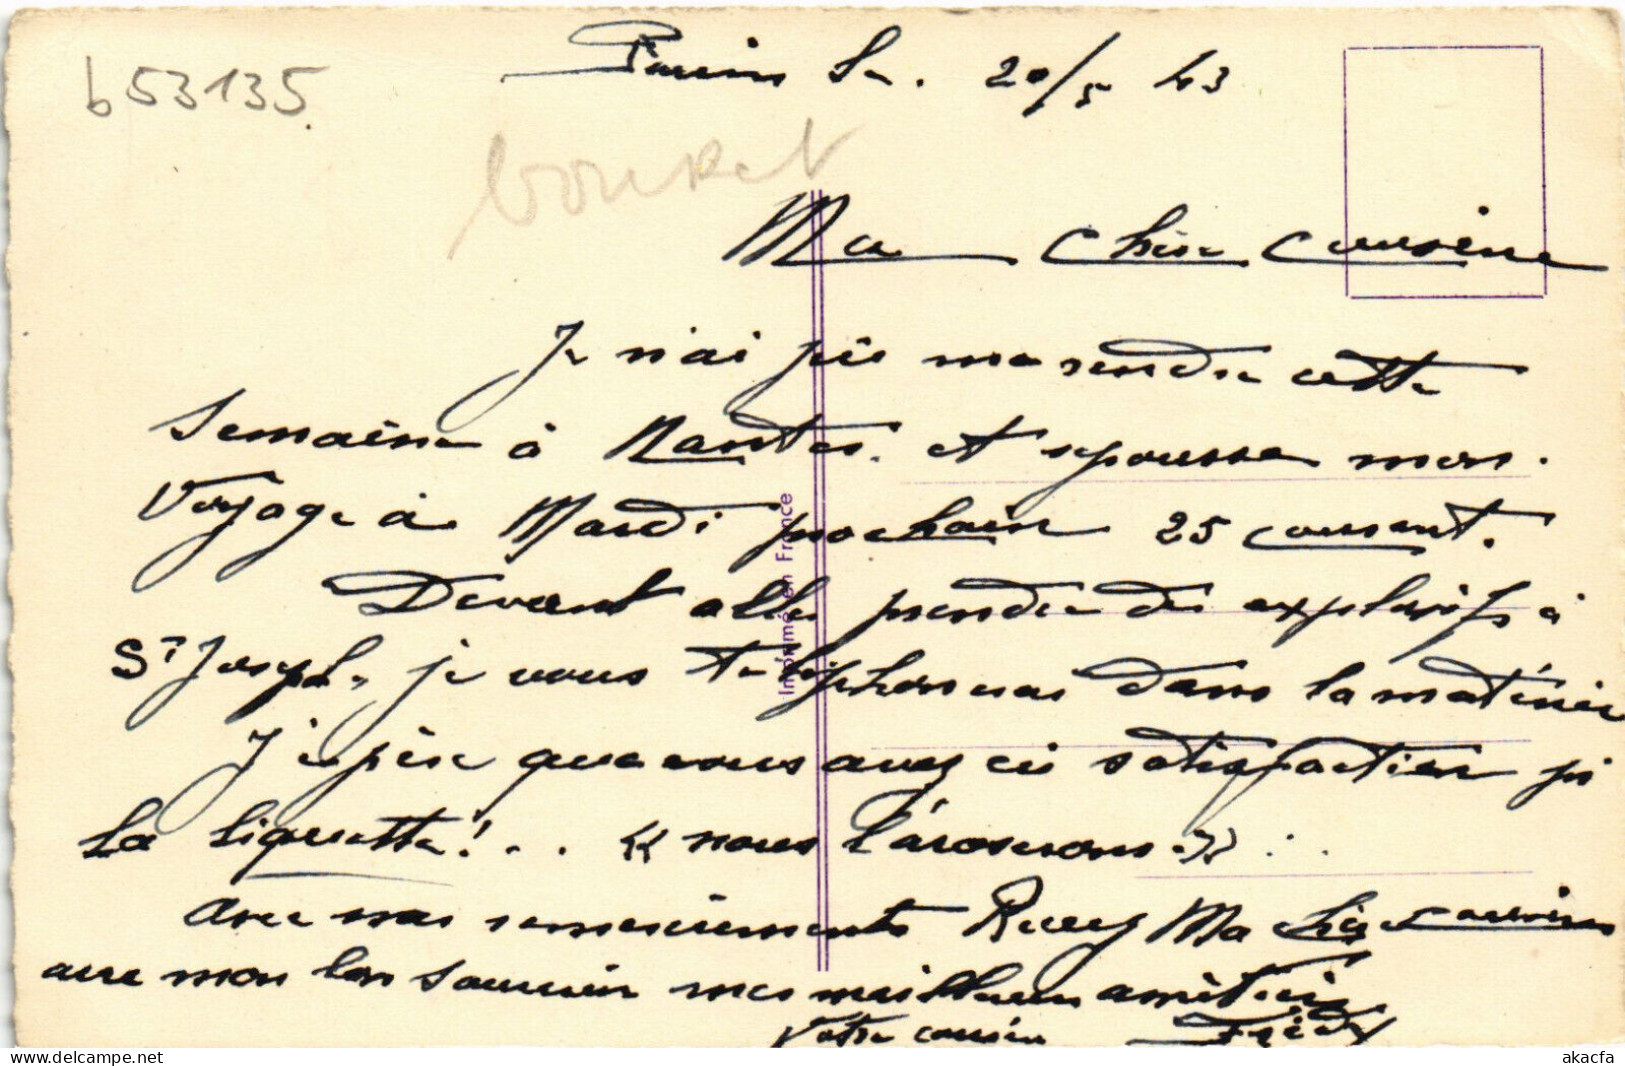 b53135
20/5 43
Ma chère Cousine
Je n'ai pû me rendre cette
Semaine à Nantes. et repousse mon
Voyage à Mardi prochain 25 courant.
Devant aller prendre des explosifs à
St Joseph, je vous téléphonerai dans la matinée
J'espère que vous avez eu satisfaction pr
La liquette!... « nous l'aroserons » ..
Avec mes remerciements Recevez Ma chère Cousine
avec mon bon Souvenir mes meilleures amitiés
Votre cousin Fred
Imprimé en France
akacfa